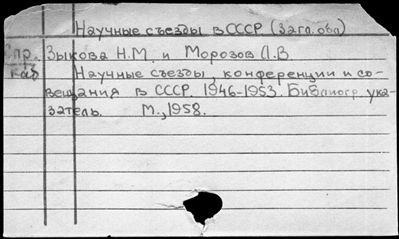 Научные съезды в СССР (загл. обл)
Спр. Зыкова Н.М. и Морозов Л.В
каб Научные съезды, конференции и со-
вещания в СССР. 1946-1953. Библиогр. ука-
затель. М., 1958.